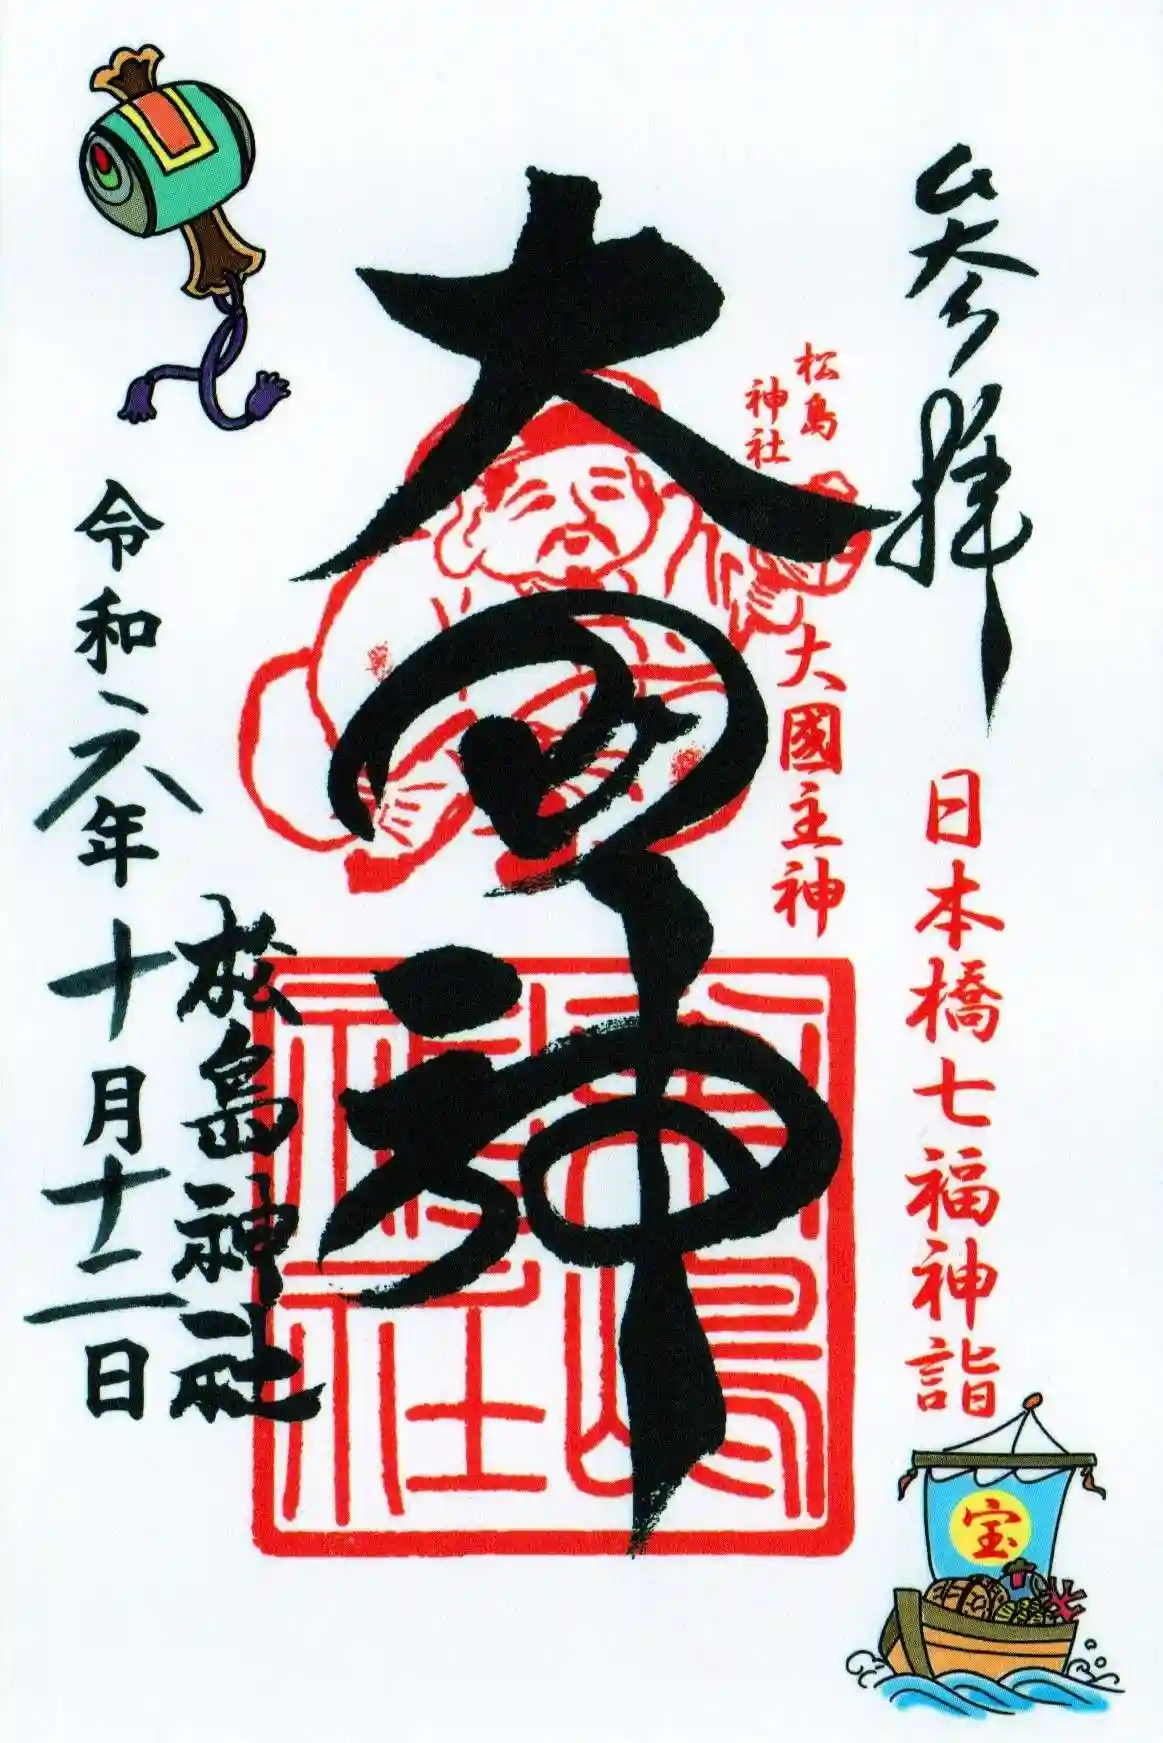 参拝
日本橋七福神詣
宝
松島
神社
大國主神
大国神
松嶋
神社
松島神社
令和六年十月十二日